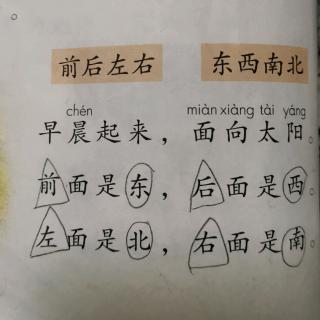 前后左右 东西南北
chén miàn xiàng tài yáng
早晨起来，面向太阳。
前面是东，后面是西。
左面是北，右面是南。